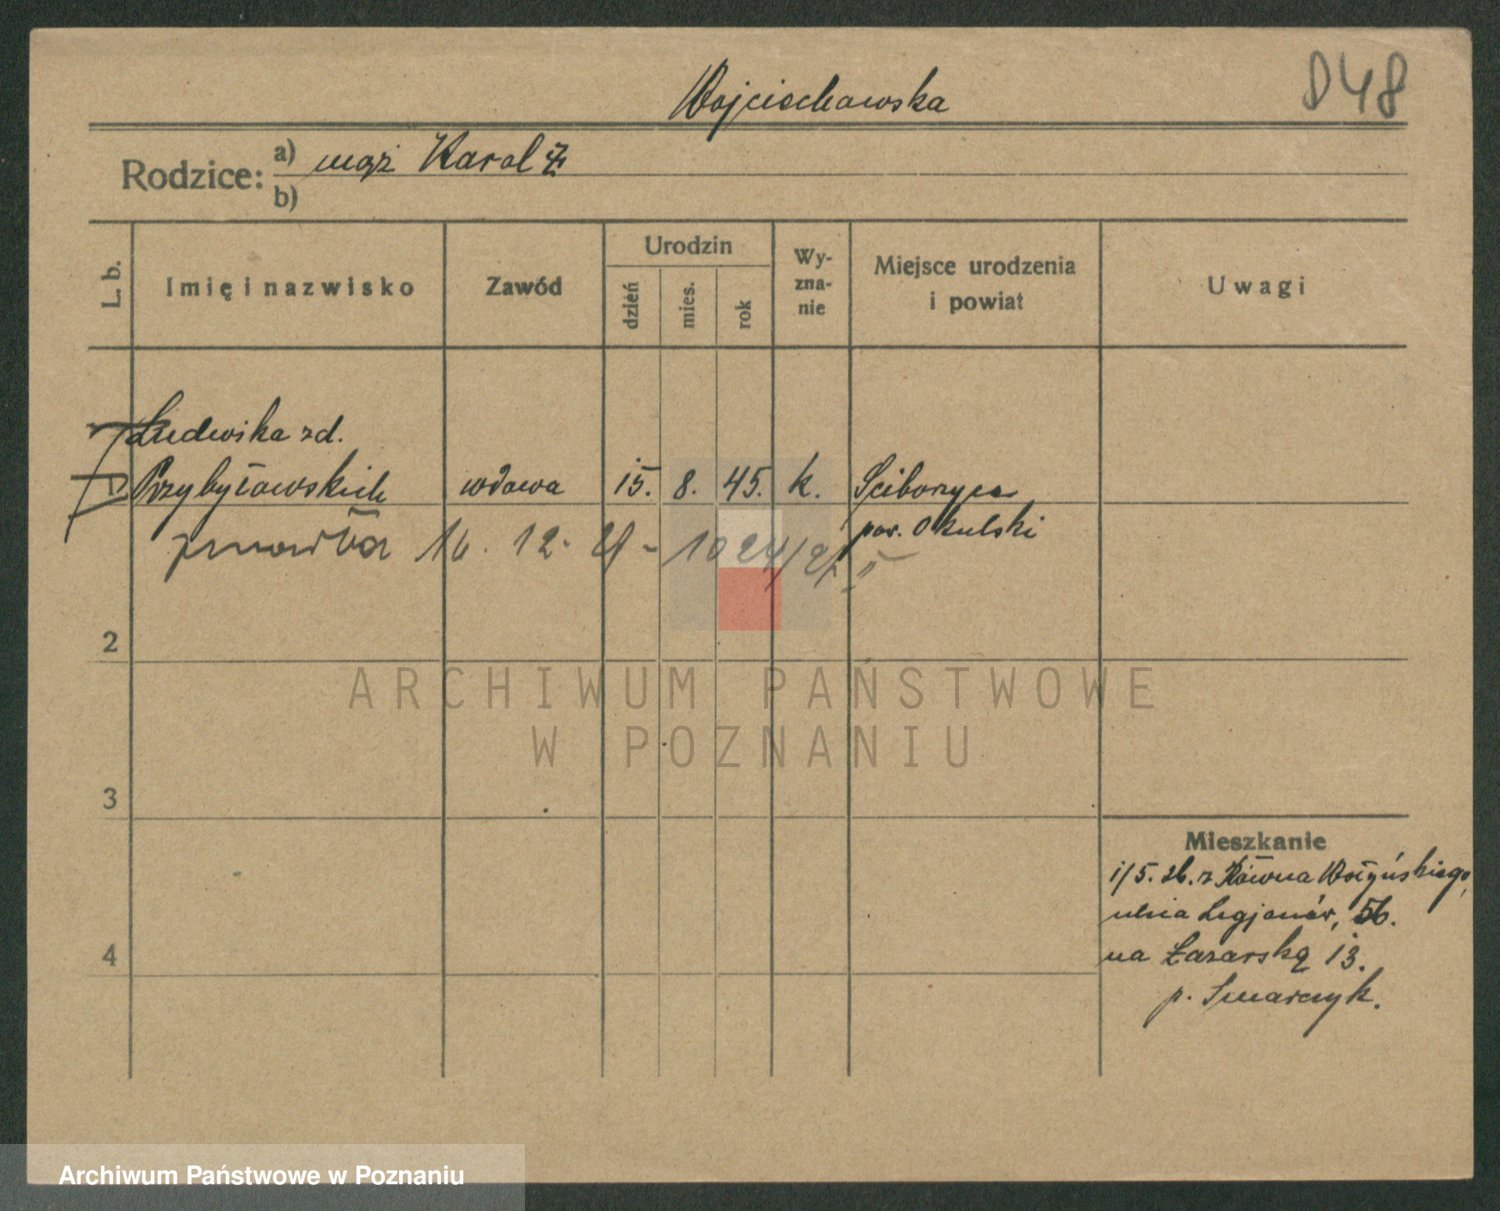 848
Wojciechowska
Rodzice: a) mąż Karol ż
b)
L. b. Imię i nazwisko Zawód Urodzin dzień mies. rok Wyznanie Miejsce urodzenia i powiat Uwagi
Ludwika zd.
Przybyławskich wdowa 15. 8. 45. k. Sciborzyce
pow. Okulski
zmarła 16. 12. 27 - 1024/27 II
2
ARCHIWUM PAŃSTWOWE
W POZNANIU
3
Mieszkanie
1/5. 26. z Równa Wołyńskiego,
ulica Legjonów, 56.
4
na Łazarską 13.
p. Smarczyk.
Archiwum Państwowe w Poznaniu